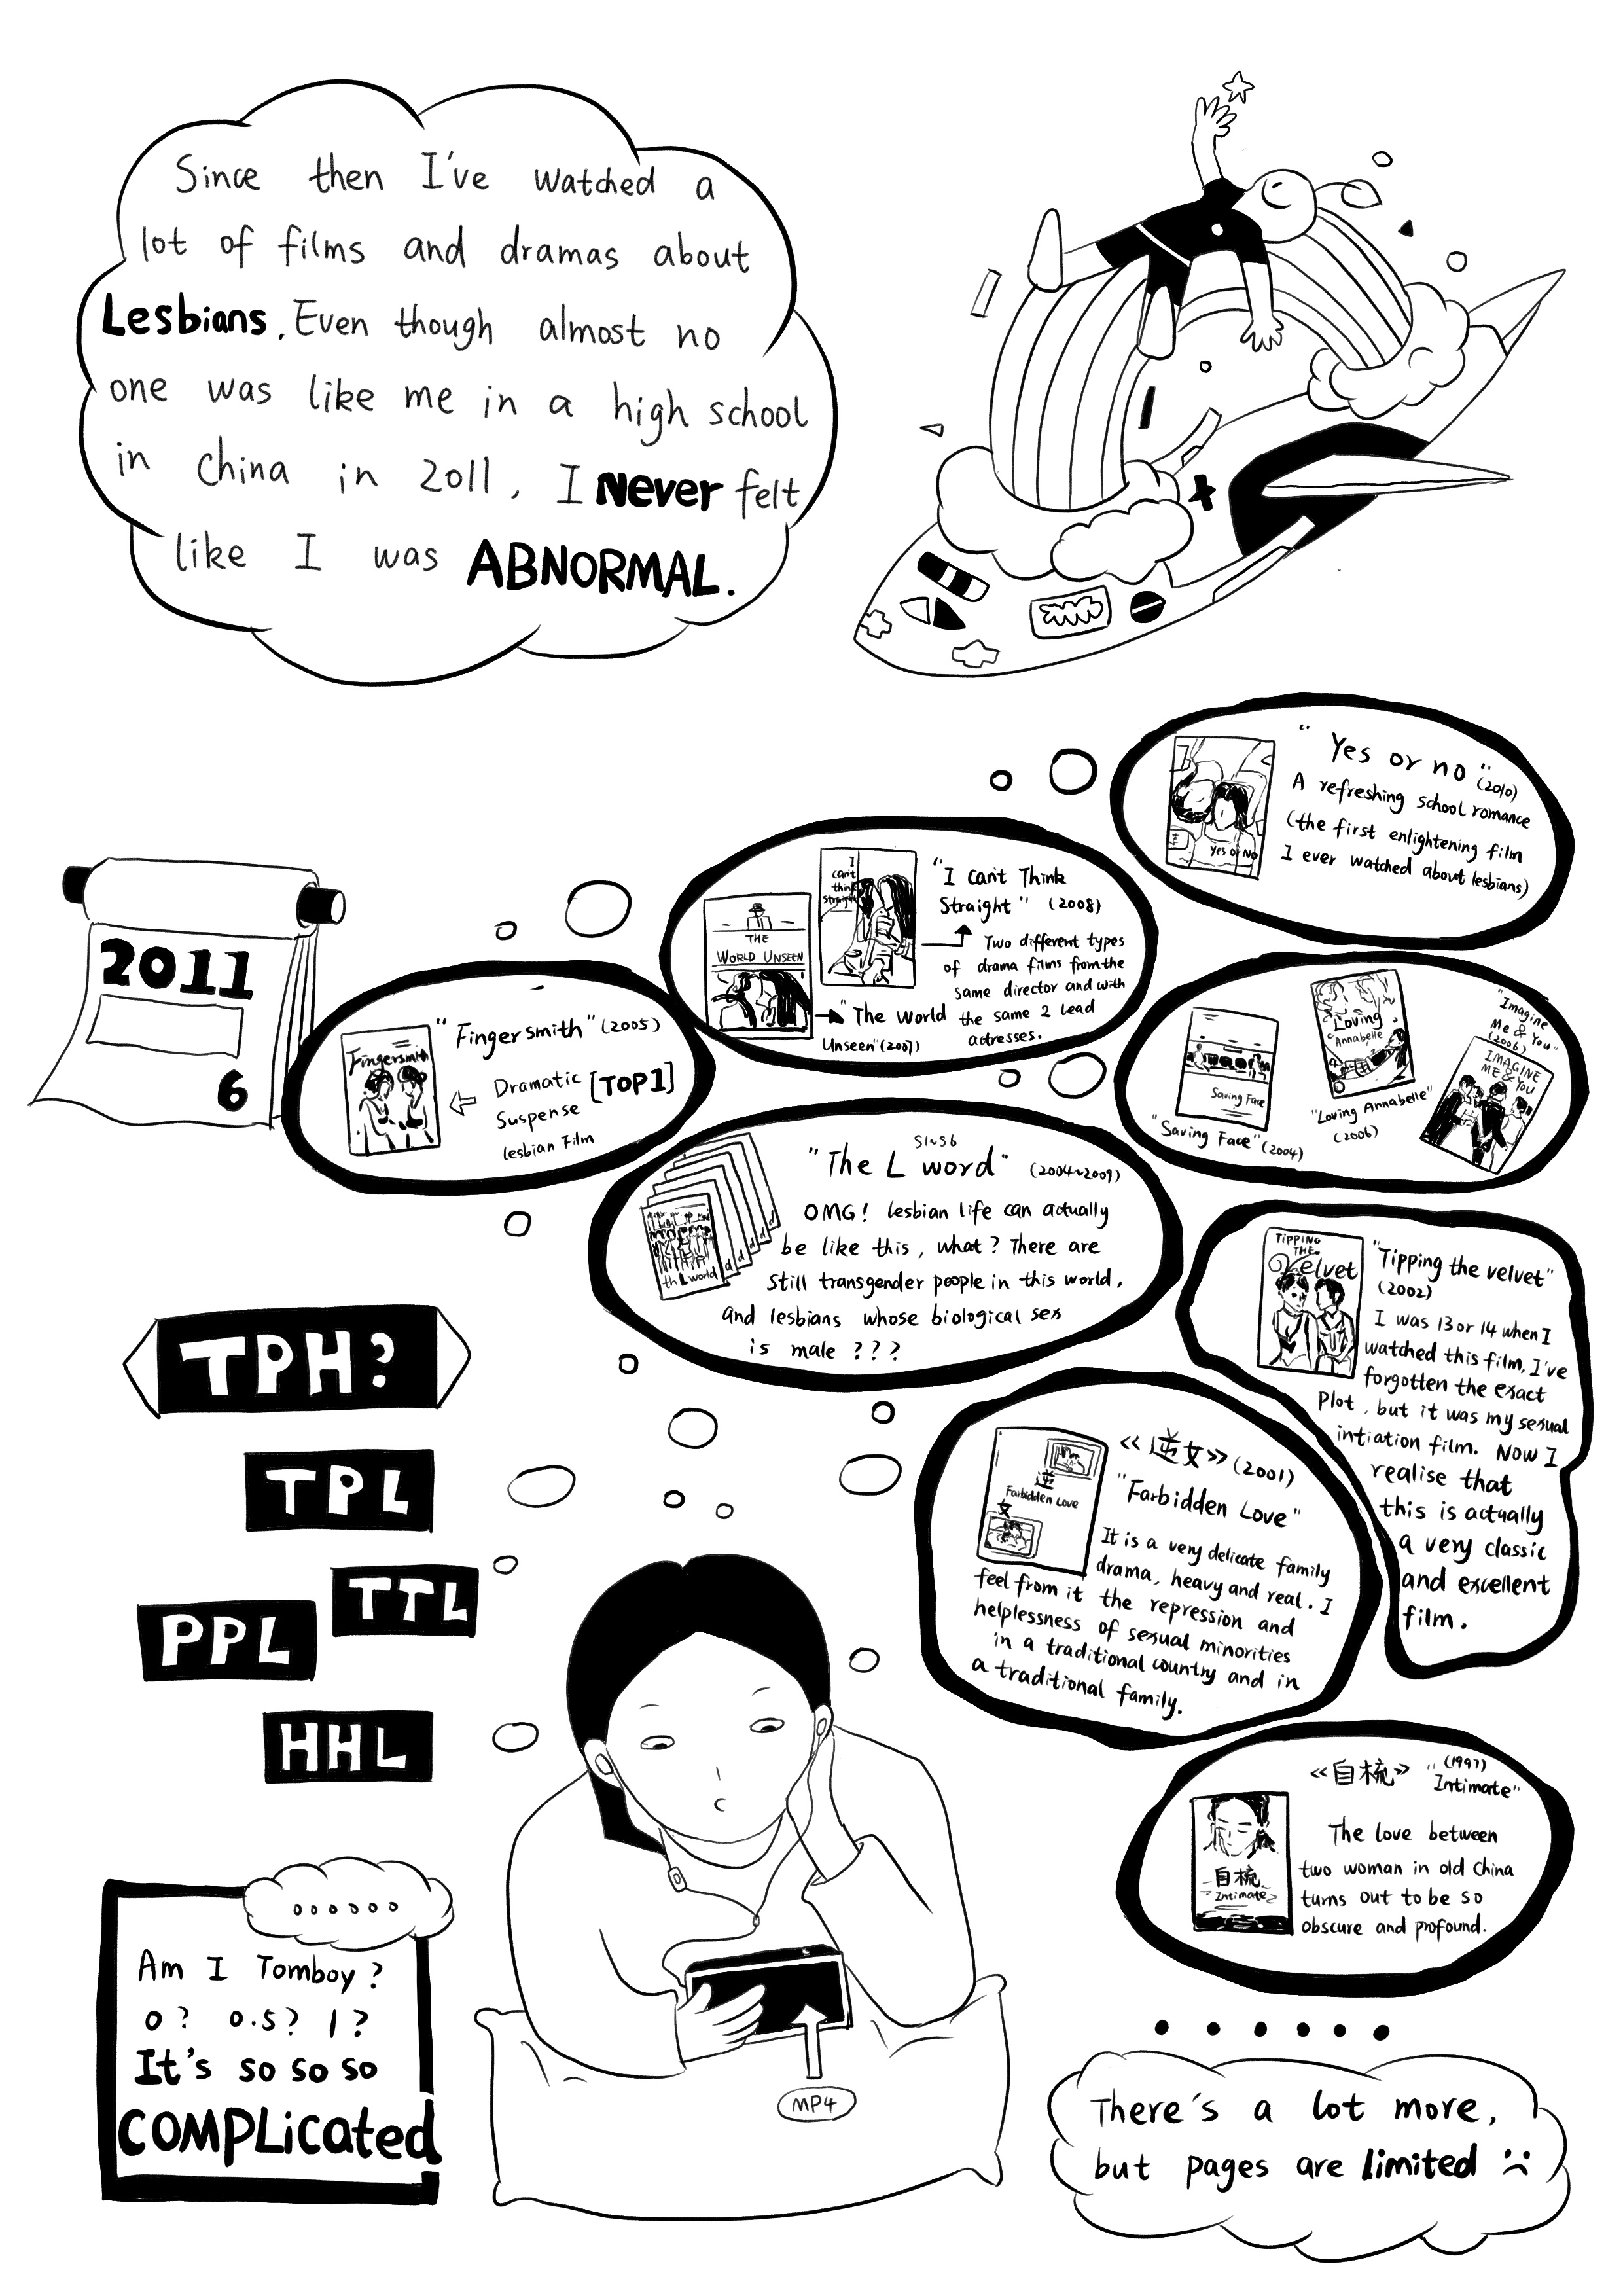 Since then I've watched a
lot of films and dramas about
Lesbians. Even though almost no
one was like me in a high school
in China in 2011, I Never felt
like I was ABNORMAL.
"Yes or no" (2010)
A refreshing school romance
(the first enlightening film
I ever watched about lesbians)
Yes or No
I
can't
think
straight
"I Can't Think
Straight" (2008)
Two different types
of drama films from the
same director and with
the same 2 lead
actresses.
THE
WORLD UNSEEN
"The World
Unseen" (2007)
2011
6
Fingersmith
"Fingersmith" (2005)
Dramatic [TOP1]
Suspense
lesbian Film
Saving Face
"Saving Face" (2004)
Loving
Annabelle
"Loving Annabelle"
(2006)
"Imagine
Me &
You"
(2006)
IMAGINE
ME & YOU
S1~S6
"The L word" (2004~2009)
OMG! lesbian life can actually
be like this, what? There are
still transgender people in this world,
and lesbians whose biological sex
is male ???
th L world
TIPPING
THE
Velvet
"Tipping the velvet"
(2002)
I was 13 or 14 when I
watched this film, I've
forgotten the exact
Plot, but it was my sexual
intiation film. Now I
realise that
this is actually
a very classic
and excellent
film.
TPH?
TPL
TTL
PPL
HHL
逆
Farbidden Love
女
《逆女》(2001)
"Farbidden Love"
It is a very delicate family
drama, heavy and real. I
feel from it the repression and
helplessness of sexual minorities
in a traditional country and in
a traditional family.
《自梳》 "Intimate" (1997)
自梳
Intimate
The love between
two woman in old China
turns out to be so
obscure and profound.
Am I Tomboy?
0? 0.5? 1?
It's so so so
COMPLicated
MP4
There's a lot more,
but pages are limited